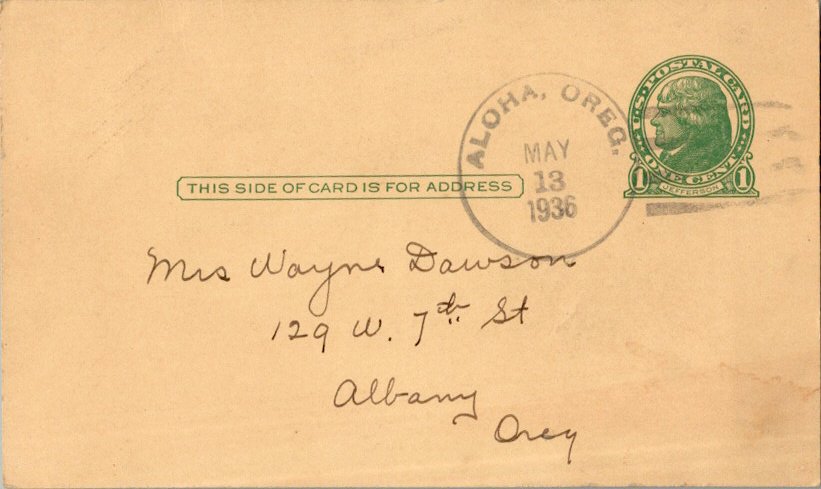 U.S. POSTAL CARD
ONE CENT
1 JEFFERSON 1
ALOHA, OREG.
MAY
13
1936
THIS SIDE OF CARD IS FOR ADDRESS
Mrs Wayne Dawson
129 W. 7th St
Albany
Oreg